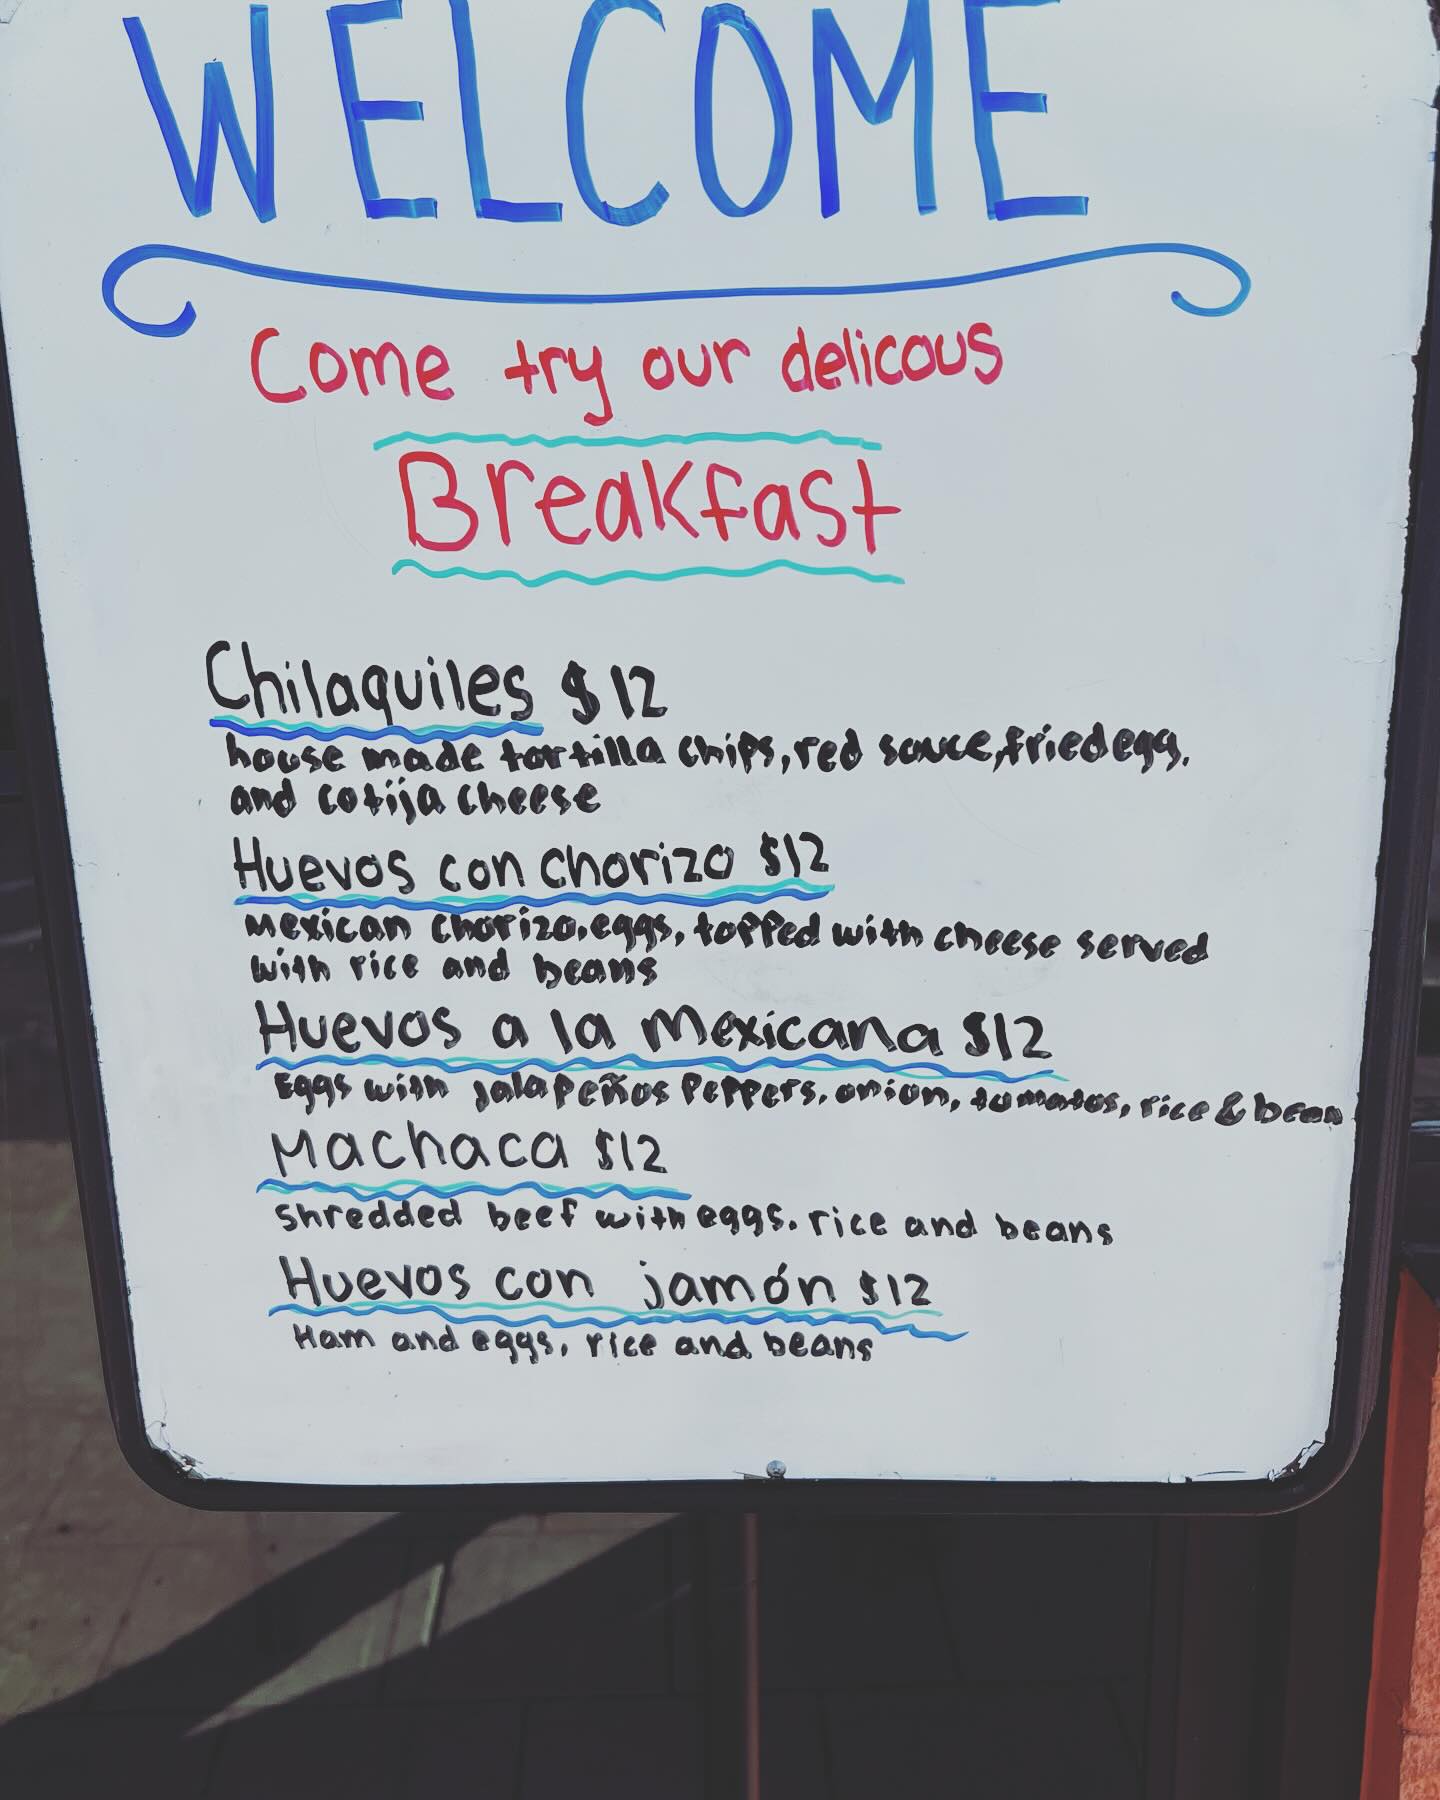 WELCOME
Come try our delicous
Breakfast
Chilaquiles $12
house made tortilla chips, red sauce, fried egg,
and cotija cheese
Huevos con chorizo $12
Mexican chorizo, eggs, topped with cheese served
with rice and beans
Huevos a la Mexicana $12
Eggs with jalapeños Peppers, onion, tomatos, rice & bean
Machaca $12
shredded beef with eggs, rice and beans
Huevos con jamón $12
Ham and eggs, rice and beans